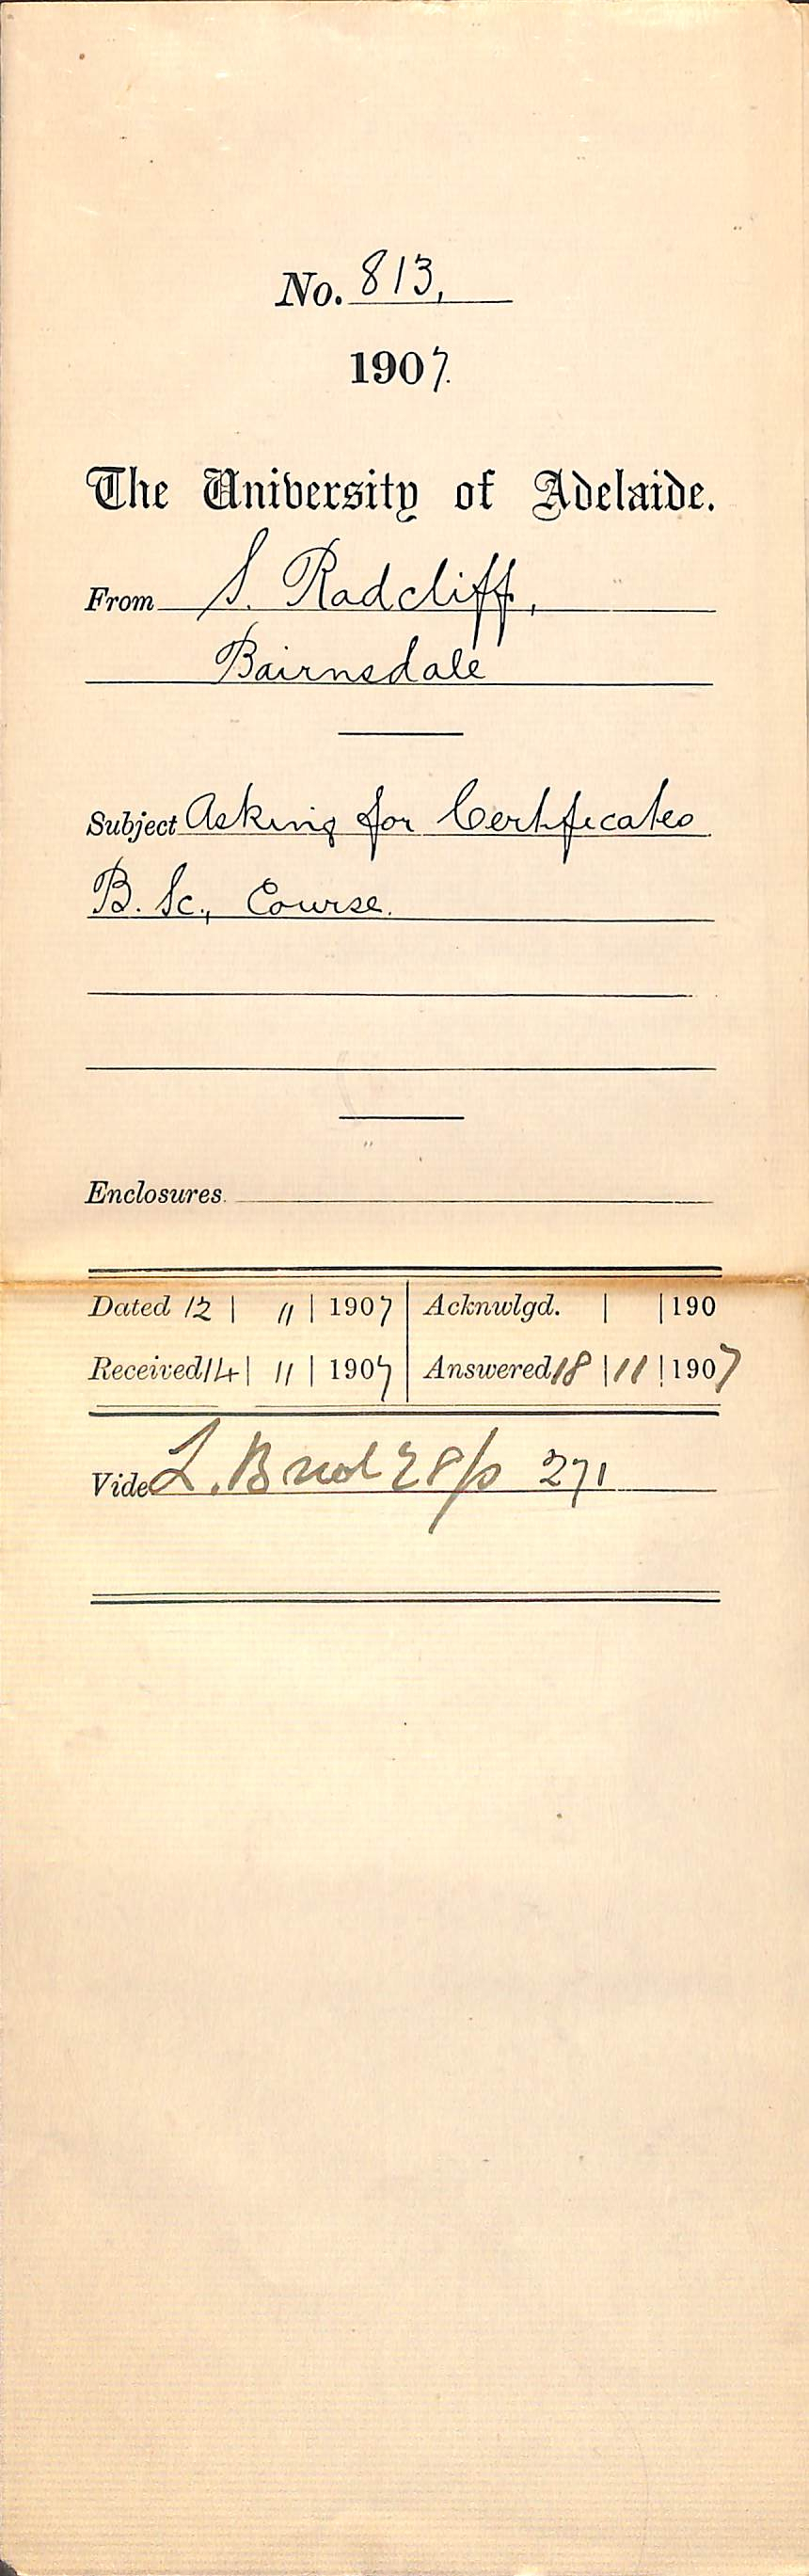 No. 813.
1907.
The University of Adelaide.
From S. Radcliff,
Bairnsdale
Subject Asking for Certificates
B. Sc., Course.
Enclosures.
Dated 12 | 11 | 1907 Acknwlgd. | | 190
Received 14 | 11 | 1907 Answered 18 | 11 | 1907
Vide L. B 271